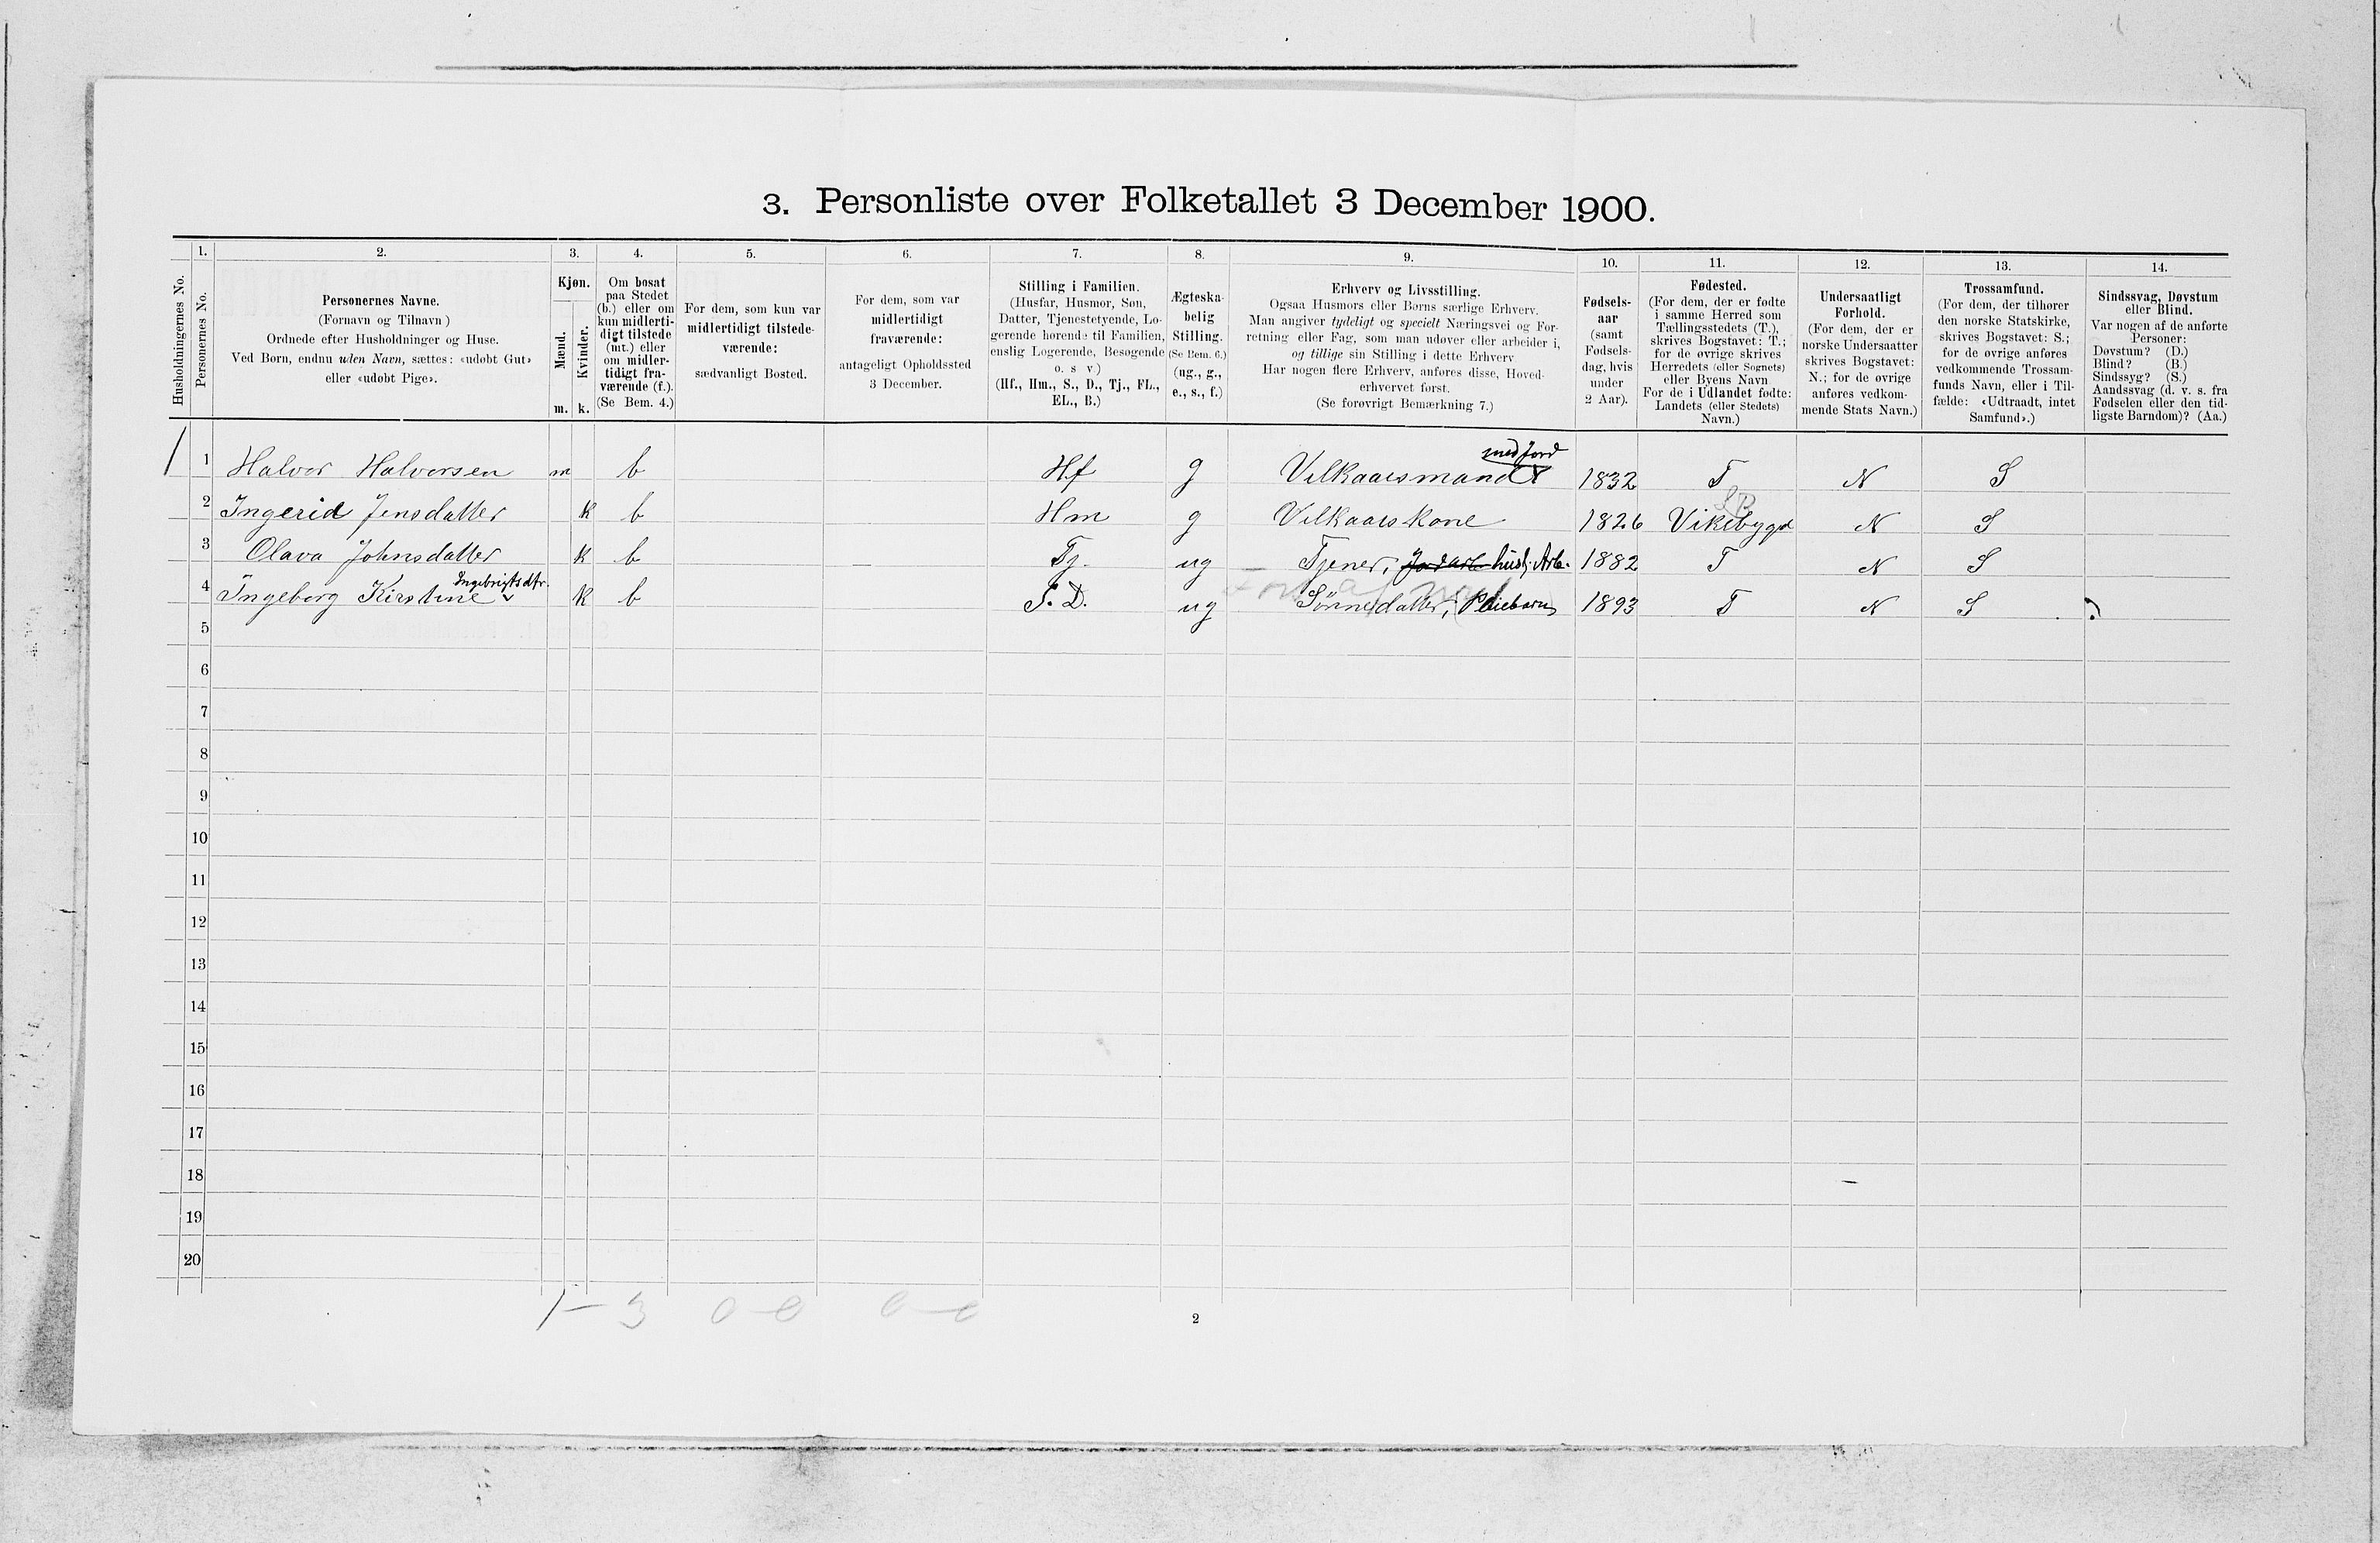 3. Personliste over Folketallet 3 December 1900.
Husholdningernes No.
1.
Personernes No.
2.
Personernes Navne.
(Fornavn og Tilnavn)
Ordnede efter Husholdninger og Huse.
Ved Børn, endnu uden Navn, sættes: «udøbt Gut»
eller «udøbt Pige».
3.
Kjøn.
Mænd.
Kvinder.
m. k.
4.
Om bosat
paa Stedet
(b.) eller om
kun midlerti-
digt tilstede
(mt.) eller
om midler-
tidigt fra-
værende (f.).
(Se Bem. 4.)
5.
For dem, som kun var
midlertidigt tilstede-
værende:
sædvanligt Bosted.
6.
For dem, som var
midlertidigt
fraværende:
antageligt Opholdssted
3 December.
7.
Stilling i Familien.
(Husfar, Husmor, Søn,
Datter, Tjenestetyende, Lo-
gerende hørende til Familien,
enslig Logerende, Besøgende
o. s v)
(Hf., Hm., S., D., Tj., FL.,
EL., B.)
8.
Ægteska-
belig
Stilling.
(Se Bem. 6.)
(ug., g.,
e., s., f.)
9.
Erhverv og Livsstilling.
Ogsaa Husmors eller Børns særlige Erhverv.
Man angiver tydeligt og specielt Næringsvei og For-
retning eller Fag, som man udøver eller arbeider i,
og tillige sin Stilling i dette Erhverv
Har nogen flere Erhverv, anføres disse, Hoved-
erhvervet først.
(Se forøvrigt Bemærkning 7.)
10.
Fødsels-
aar
(samt
Fødsels-
dag, hvis
under
2 Aar).
11.
Fødested.
(For dem, der er fødte
i samme Herred som
Tællingsstedets (T.),
skrives Bogstavet: T.;
for de øvrige skrives
Herredets (eller Sognets)
eller Byens Navn
For de i Udlandet fødte:
Landets (eller Stedets)
Navn.)
12.
Undersaatligt
Forhold.
(For dem, der er
norske Undersaatter
skrives Bogstavet:
N.; for de øvrige
anføres vedkom-
mende Stats Navn.)
13.
Trossamfund.
(For dem, der tilhører
den norske Statskirke,
skrives Bogstavet: S.;
for de øvrige anføres
vedkommende Trossam-
funds Navn, eller i Til-
fælde: «Udtraadt, intet
Samfund».)
14.
Sindssvag, Døvstum
eller Blind.
Var nogen af de anførte
Personer:
Døvstum? (D.)
Blind? (B.)
Sindssyg? (S.)
Aandssvag (d. v. s. fra
Fødselen eller den tid-
ligste Barndom)? (Aa.)
med Jord
1 1 Halvor Halvorsen m b Hf g Vilkaarsmand 1832 T N S
2 Ingerid Jensdatter k b Hm g Vilkaarskone 1826 Vikebygd N S
3 Olava Johnsdatter k b Tj. ug Tjener, husl. Arb. 1882 T N S
Ingebrigtsdtr.
4 Ingeborg Kirstine k b S. D. ug Sønnedatter, Pleiebarn 1893 T N S
5
6
7
8
9
10
11
12
13
14
15
16
17
18
19
20
1 – 3 0 – 0 0 – 0
2